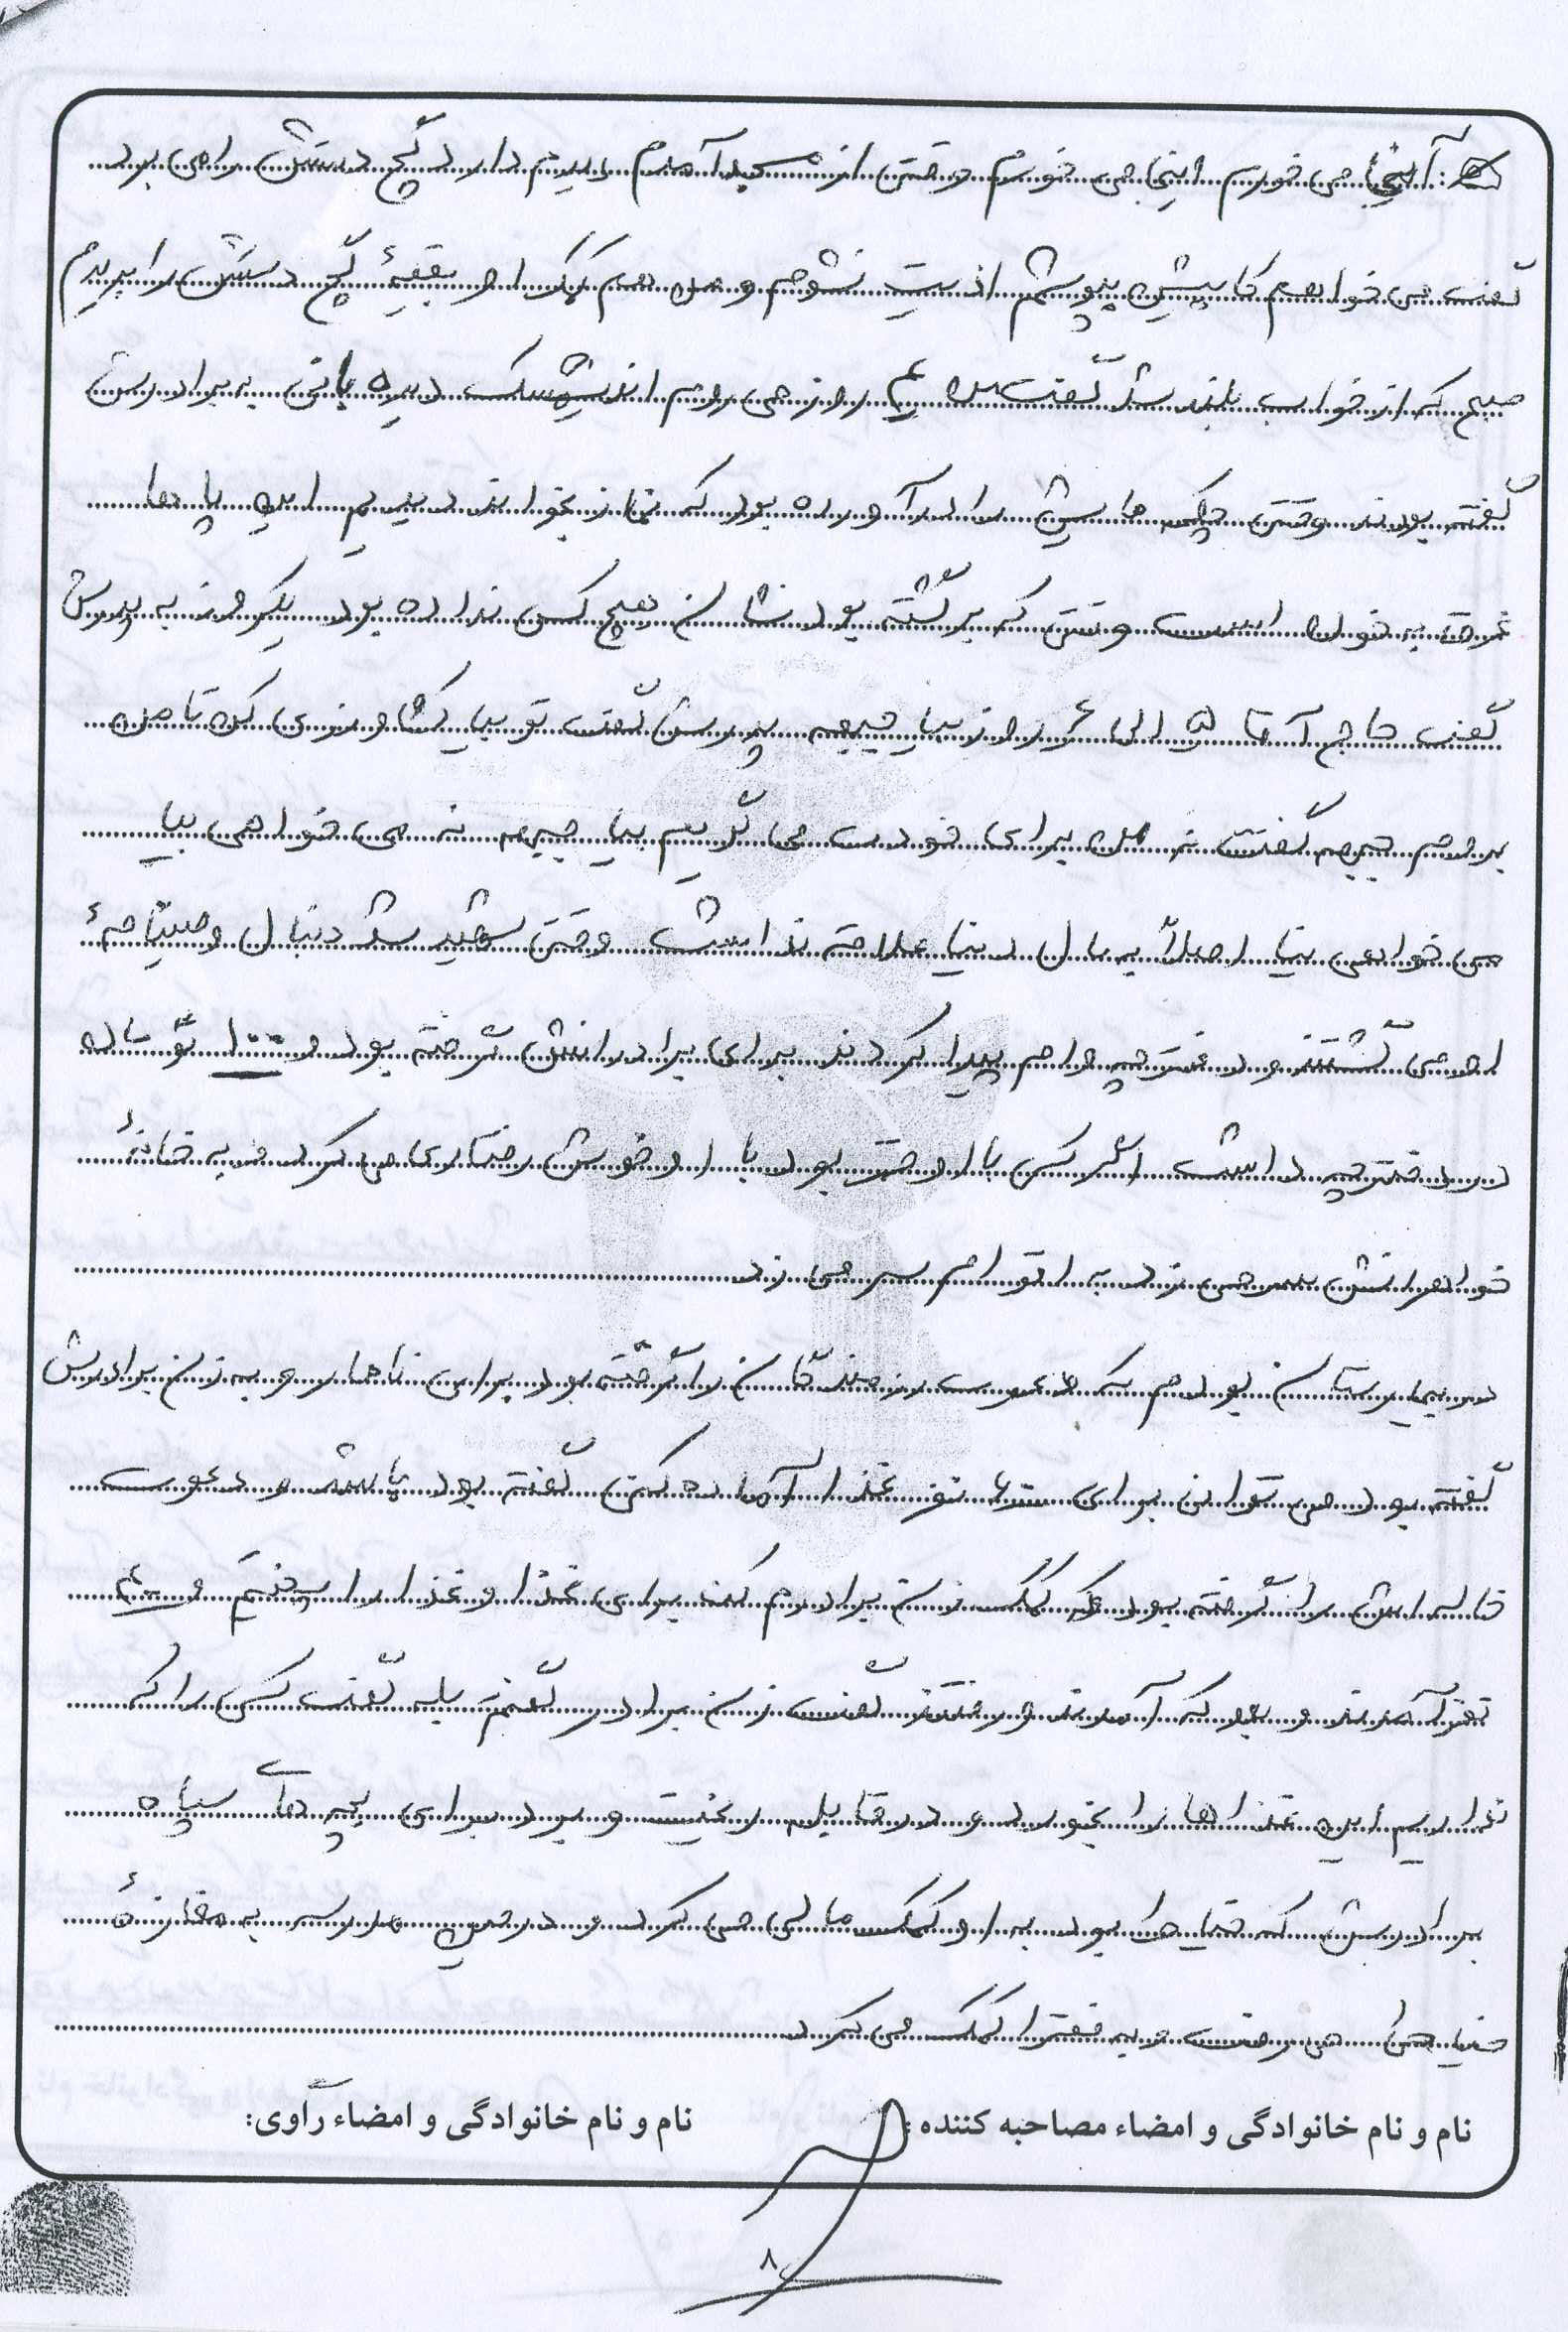 آنجا می خورم اینجا می خورم وقتی از مسجد آمدم دیدم دارد گچ دستش را می برد
گفت می خواهم کاپشن بپوشم اذیت نشوم و من هم کمک او بقیهٔ گچ دستش را بریدم
صبح که از خواب بلند شد گفت من ۴ روز می روم اندیمشک دیده بانی به برادرش
گفته بودند وقتی چکمه هایش را درآورده بود که نماز بخواند دیدیم این پاها
غرق به خون است وقتی که برگشته بود نشان هیچ کس نداده بود یکروز به پدرش
گفت حاج آقا ۵ الی ۶ روز بیا جبهه پدرش گفت تو بیا کشاورزی کن تا من
بروم جبهه گفتش نه من برای خودت می گویم بیا جبهه نه می خواهی بیا
می خواهی نیا اصلاً به مال دنیا علاقه نداشت وقتی شهید شد دنبال وصیتنامهٔ
او می گشتند و دفترچه وام پیدا کردند برای برادرانش گرفته بود و ۱۰۰۰ تومان
در دفترچه داشت اگر کسی با او قهر بود با او خوش رفتاری می کرد و به خانهٔ
خواهرانش سر می زد به اقوام سر می زد
در بیمارستان بودم که دعوت رزمندگان را گرفته بود برای ناهار و به زن برادرش
گفته بود می توانی برای ۶ نفر غذا آماده کنی گفته بود باشد و دعوت
خاله اش را گرفته بود که کمک زن برادرم کند برای غذا و غذا را پختیم و ۴۰
نفر آمدند و بعد که آمدند و رفتند گفت زن برادر گفتم بله گفت کسی را که
نداریم این غذاها را بخورد و در قابلمه ریخت و برد برای بچه های سپاه
برادرش که خیاط بود به او کمک مالی می کرد و در حین مدرسه به مغازهٔ
خیاطی می رفت و به فقرا کمک می کرد
نام و نام خانوادگی و امضاء مصاحبه کننده: نام و نام خانوادگی و امضاء راوی:
۸